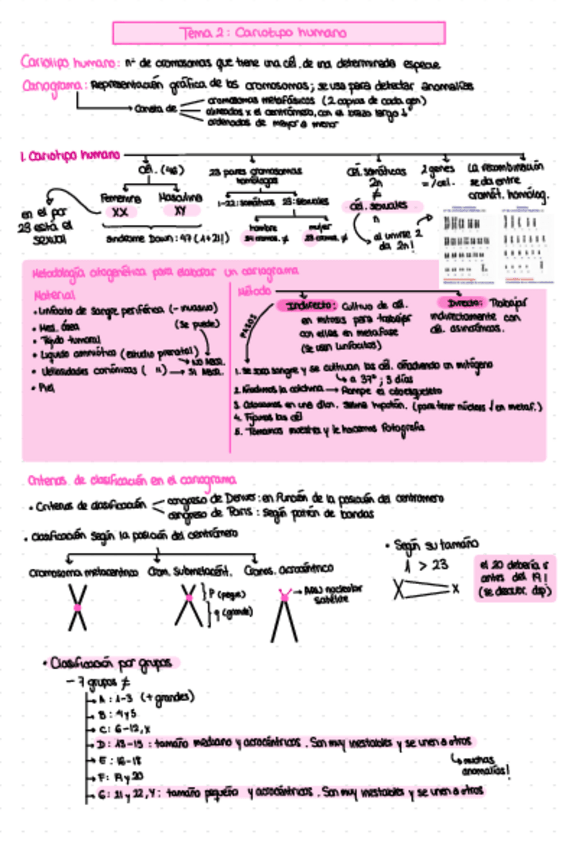 Tema 2: Cariotipo humano
Cariotipo humano: nº de cromosomas que tiene una cél. de una determinada especie
Cariograma: Representación gráfica de los cromosomas; se usa para detectar anomalías
Consta de
cromosomas metafásicos (2 copias de cada gen)
alineados x el centrómero, con el brazo largo ↓
ordenados de mayor a menor
1. Cariotipo humano
Cél. (46)
23 pares cromosomas homólogos
Cél. somáticas 2n
≠
Cél. sexuales n
al unirse 2 da 2n!
2 genes = /cél.
La recombinación se da entre cromát. homólog.
en el par 23 está el sexual
Femenino XX
Masculino XY
Síndrome Down: 47 (+21!)
1-22: somáticos
23: sexuales
hombre
24 cromos. ≠
mujer
23 cromos. ≠
Metodología citogenética para elaborar un cariograma
Material
• Linfocito de sangre periférica (- invasivo)
• Med. ósea (se puede)
• Tejido tumoral
• Líquido amniótico (estudio prenatal)
• Vellosidades coriónicas ( " )
• Piel
Método
PASOS
Indirecto: Cultivo de cél. en mitosis para trabajar con ellas en metafase (se usan linfocitos)
Directo: Trabajar indirectamente con cél. asincrónicas.
1. Se saca sangre y se cultivan las cél. añadiendo un mitógeno
↳ a 37°; 3 días
2. Añadimos la colchicina → Rompe el citoesqueleto
3. Colocamos en una disn. salina hipotón. (para tener núcleos ↓ en metaf.)
4. Fijamos las cél
5. Tomamos muestra y le hacemos fotografía
Criterios de clasificación en el cariograma
• Criterios de clasificación
congreso de Denver: en función de la posición del centrómero
congreso de París: según patrón de bandas
• Clasificación según la posición del centrómero
Cromosoma metacéntrico
Crom. Submetacént.
Cromos. acrocéntrico
p (peque)
q (grande)
→ ADN nucleolar satélite
• Según su tamaño
1 > 23
el 20 debería ir antes del 19! (se descubr. dsp)
• Clasificación por grupos
- 7 grupos ≠
A: 1-3 (+ grandes)
B: 4 y 5
C: 6-12, X
D: 13-15: tamaño mediano y acrocéntricos. Son muy inestables y se unen a otros
↳ muchas anomalías!
E: 16-18
F: 19 y 20
G: 21 y 22, Y: tamaño pequeño y acrocéntricos. Son muy inestables y se unen a otros